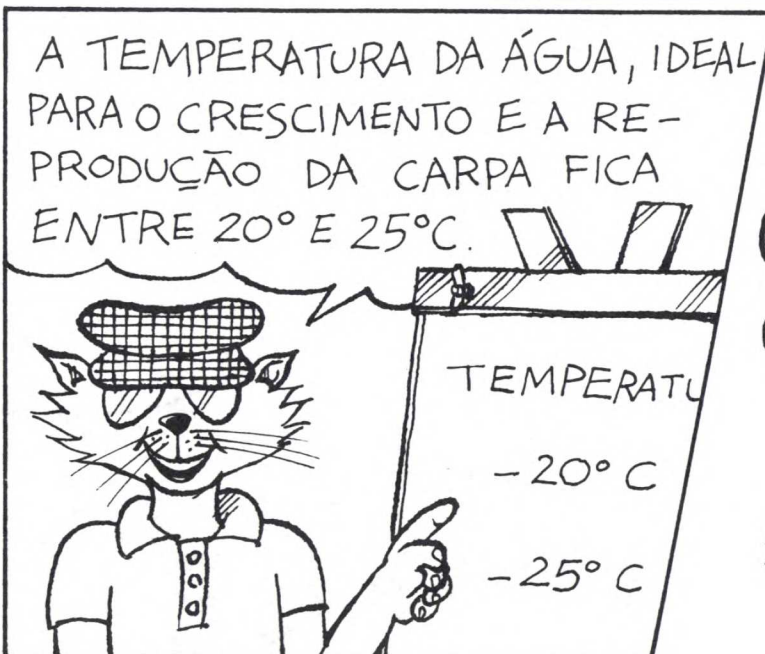 A TEMPERATURA DA ÁGUA, IDEAL
PARA O CRESCIMENTO E A RE-
PRODUÇÃO DA CARPA FICA
ENTRE 20° E 25°C.
TEMPERATU
- 20° C
- 25° C